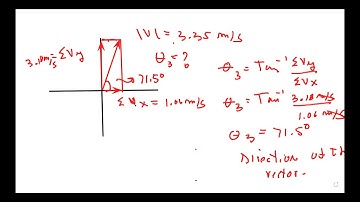 |V| = 3.35 m/s
3.18 m/s = ΣVy
θ3 = ?
71.5°
ΣVx = 1.06 m/s
θ3 = Tan⁻¹ ΣVy
ΣVx
θ3 = Tan⁻¹ 3.18 m/s
1.06 m/s
θ3 = 71.5°
Direction of th
vector